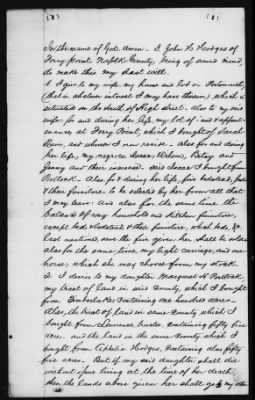 (8) (8)
In the name of God amen. I John H Hodges of
Ferry Point Norfolk County, being of sound mind,
do make this my last will.
1. I give to my wife, my house and lot in Portsmouth,
(that is whatever interest I may have therein) which is
situated on the South of High street. Also to my said
wife for and during her life, my lot of and appurt-
enances at Ferry Point, which I bought of Sarah
and whereon I now reside. also for and during
her life, my negroes Isaac, Wilson, Patsy and
Jenny and their increase, said Isaac I bought from
Pollock. Also for & during her life, five bedsteads, beds
& their furniture to be selected by her from all that
I may leave. And also for the same time the
balance of my household and kitchen furniture,
except beds & bedsteads & their furniture, which beds, &c
last mentioned, over the five given her, shall be sold
also for the same time, my light carriage, and one
horse, which she may choose from my stock
2. I devise to my daughter Margaret A
my tract of land in said county, which I bought
from Timberlake containing one hundred acres.
Also, the tract of land in same county which I
bought from Lawrence, containing fifty five
acres. and the land in the same county which I
bought from Hodges, containing also fifty
five acres. But if my said daughter shall die
without issue living at the time of her death,
then the lands above given her shall go to my other